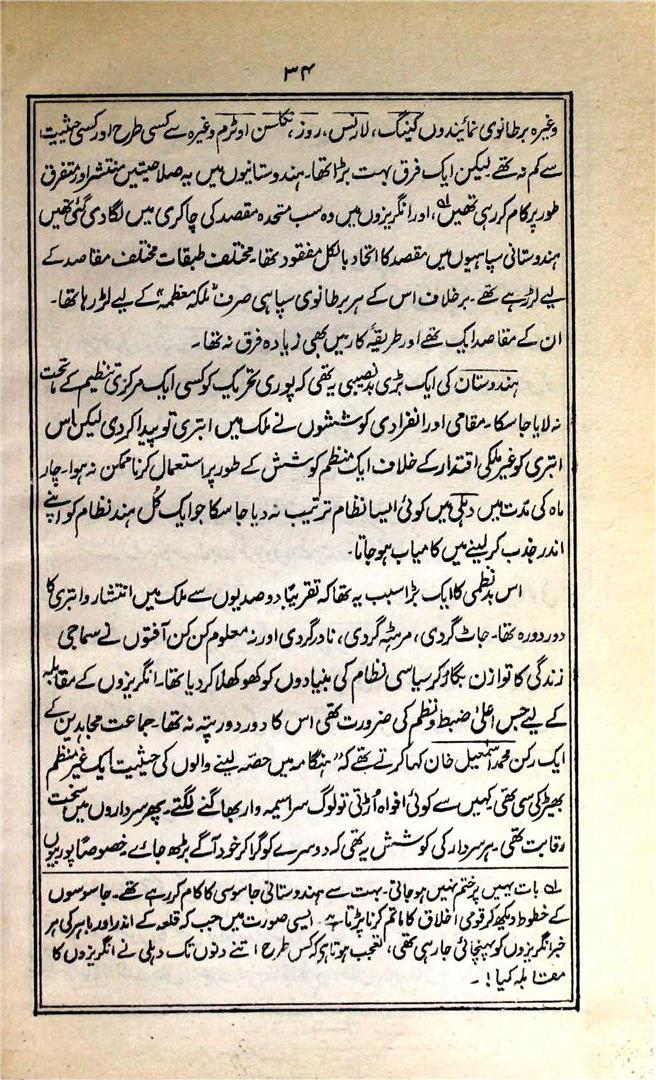 ۳۴
وغیرہ برطانوی نمائیندوں کیننگ، لارنس، روز، نکلسن اوٹرم وغیرہ سے کسی طرح اور کسی حیثیت
سے کم نہ تھے لیکن ایک فرق بہت بڑا تھا۔ ہندوستانیوں میں یہ صلاحیتیں منتشر اور متفرق
طور پر کام کر رہی تھیں لہ، اور انگریزوں میں وہ سب متحدہ مقصد کی چاکری میں لگا دی گئی تھیں
ہندوستانی سپاہیوں میں مقصد کا اتحاد بالکل مفقود تھا۔ مختلف طبقات مختلف مقاصد کے
لیے لڑ رہے تھے۔ برخلاف اس کے ہر برطانوی سپاہی صرف "ملکہ معظمہ" کے لیے لڑ رہا تھا۔
ان کے مقاصد ایک تھے اور طریقۂ کار میں بھی زیادہ فرق نہ تھا۔
ہندوستان کی ایک بڑی بدنصیبی یہ تھی کہ پوری تحریک کو کسی ایک مرکزی تنظیم کے ماتحت
نہ لایا جا سکا۔ مقامی اور انفرادی کوششوں نے ملک میں ابتری تو پیدا کر دی لیکن اس
ابتری کو غیر ملکی اقتدار کے خلاف ایک منظم کوشش کے طور پر استعمال کرنا ممکن نہ ہوا۔ چار
ماہ کی مدّت میں دہلی میں کوئی ایسا نظام ترتیب نہ دیا جا سکا جو ایک کُل ہند نظام کو اپنے
اندر جذب کر لینے میں کامیاب ہو جاتا۔
اس بدنظمی کا ایک بڑا سبب یہ تھا کہ تقریباً دو صدیوں سے ملک میں انتشار و ابتری کا
دور دورہ تھا۔ جاٹ گردی، مرہٹہ گردی، نادر گردی اور نہ معلوم کن کن آفتوں نے سماجی
زندگی کا توازن بگاڑ کر سیاسی نظام کی بنیادوں کو کھوکھلا کر دیا تھا۔ انگریزوں کے مقابلہ
کے لیے جس اعلیٰ ضبط و نظم کی ضرورت تھی اس کا دور دور پتہ نہ تھا۔ جماعت مجاہدین کے
ایک رکن محمد اسمٰعیل خان کہا کرتے تھے کہ "ہنگامہ میں حصّہ لینے والوں کی حیثیت ایک غیر منظم
بھیڑ کی سی تھی۔ کہیں سے کوئی افواہ اُڑتی تو لوگ سراسیمہ وار بھاگنے لگتے۔ پھر سرداروں میں سخت
رقابت تھی۔ ہر سردار کی کوشش یہ تھی کہ دوسرے کو گرا کر خود آگے بڑھ جائے۔ خصوصاً پوربیوں
لہ بات یہیں پر ختم نہیں ہو جاتی۔ بہت سے ہندوستانی جاسوسی کا کام کر رہے تھے۔ جاسوسوں
کے خطوط دیکھ کر قومی اخلاق کا ماتم کرنا پڑتا ہے۔ ایسی صورت میں جب کہ قلعہ کے اندر اور باہر کی ہر
خبر انگریزوں کو پہنچائی جا رہی تھی، تعجب ہوتا ہے کہ کس طرح اتنے دنوں تک دہلی نے انگریزوں کا
مقابلہ کیا!۔